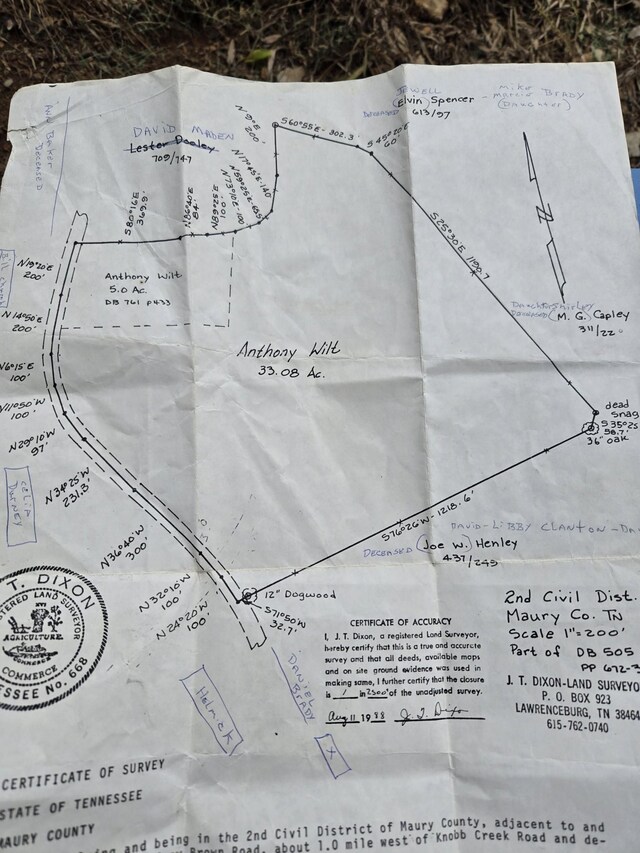 JEWELL
(Elvin) Spencer
DECEASED
613/97
Mike
Marcia BRADY
(DAUGHTER)
DAVID MADEN
Lester Dooley
709/747
DECEASED
N 9° E
200'
S60°55'E - 302.3'
S 45°20'E
60'
S80°16'E
369.9'
N86°40'E
84'
N89°25'E
100'
N73°10'E
100'
N17°45'E-140
S25°30'E 1190.7'
N
Anthony Wilt
5.0 Ac.
DB 761 P433
N19°20'E
200'
N14°50'E
200'
N6°15'E
100'
N11°50'W
100'
N29°10'W
97'
N34°25'W
231.3'
N36°40'W
300'
N32°10'W
100'
N24°20'W
100'
Anthony Wilt
33.08 Ac.
DECEASED (M. G.) Capley
311/22
dead
snag
S35°25
58.7'
36" oak
S76°26'W-1218.6'
DAVID-LIBBY CLANTON-DA
DECEASED (Joe W.) Henley
437/249
50'
12" Dogwood
S71°50'W
32.7'
DANIEL
BRADY
X
T. DIXON
TERED LAND SURVEYOR
AGRICULTURE
COMMERCE
ESSEE No. 668
CERTIFICATE OF ACCURACY
I, J. T. Dixon, a registered Land Surveyor,
hereby certify that this is a true and accurate
survey and that all deeds, available maps
and on site ground evidence was used in
making same, I further certify that the closure
is 1 in 2500' of the unadjusted survey.
Aug 11 1988 J. T. Dixon
2nd Civil Dist.
Maury Co. TN
Scale 1"=200'
Part of DB 505
PP 672-3
J. T. DIXON-LAND SURVEYO
P. O. BOX 923
LAWRENCEBURG, TN 3846
615-762-0740
CERTIFICATE OF SURVEY
STATE OF TENNESSEE
MAURY COUNTY
ing and being in the 2nd Civil District of Maury County, adjacent to and
Brown Road, about 1.0 mile west of Knobb Creek Road and de-